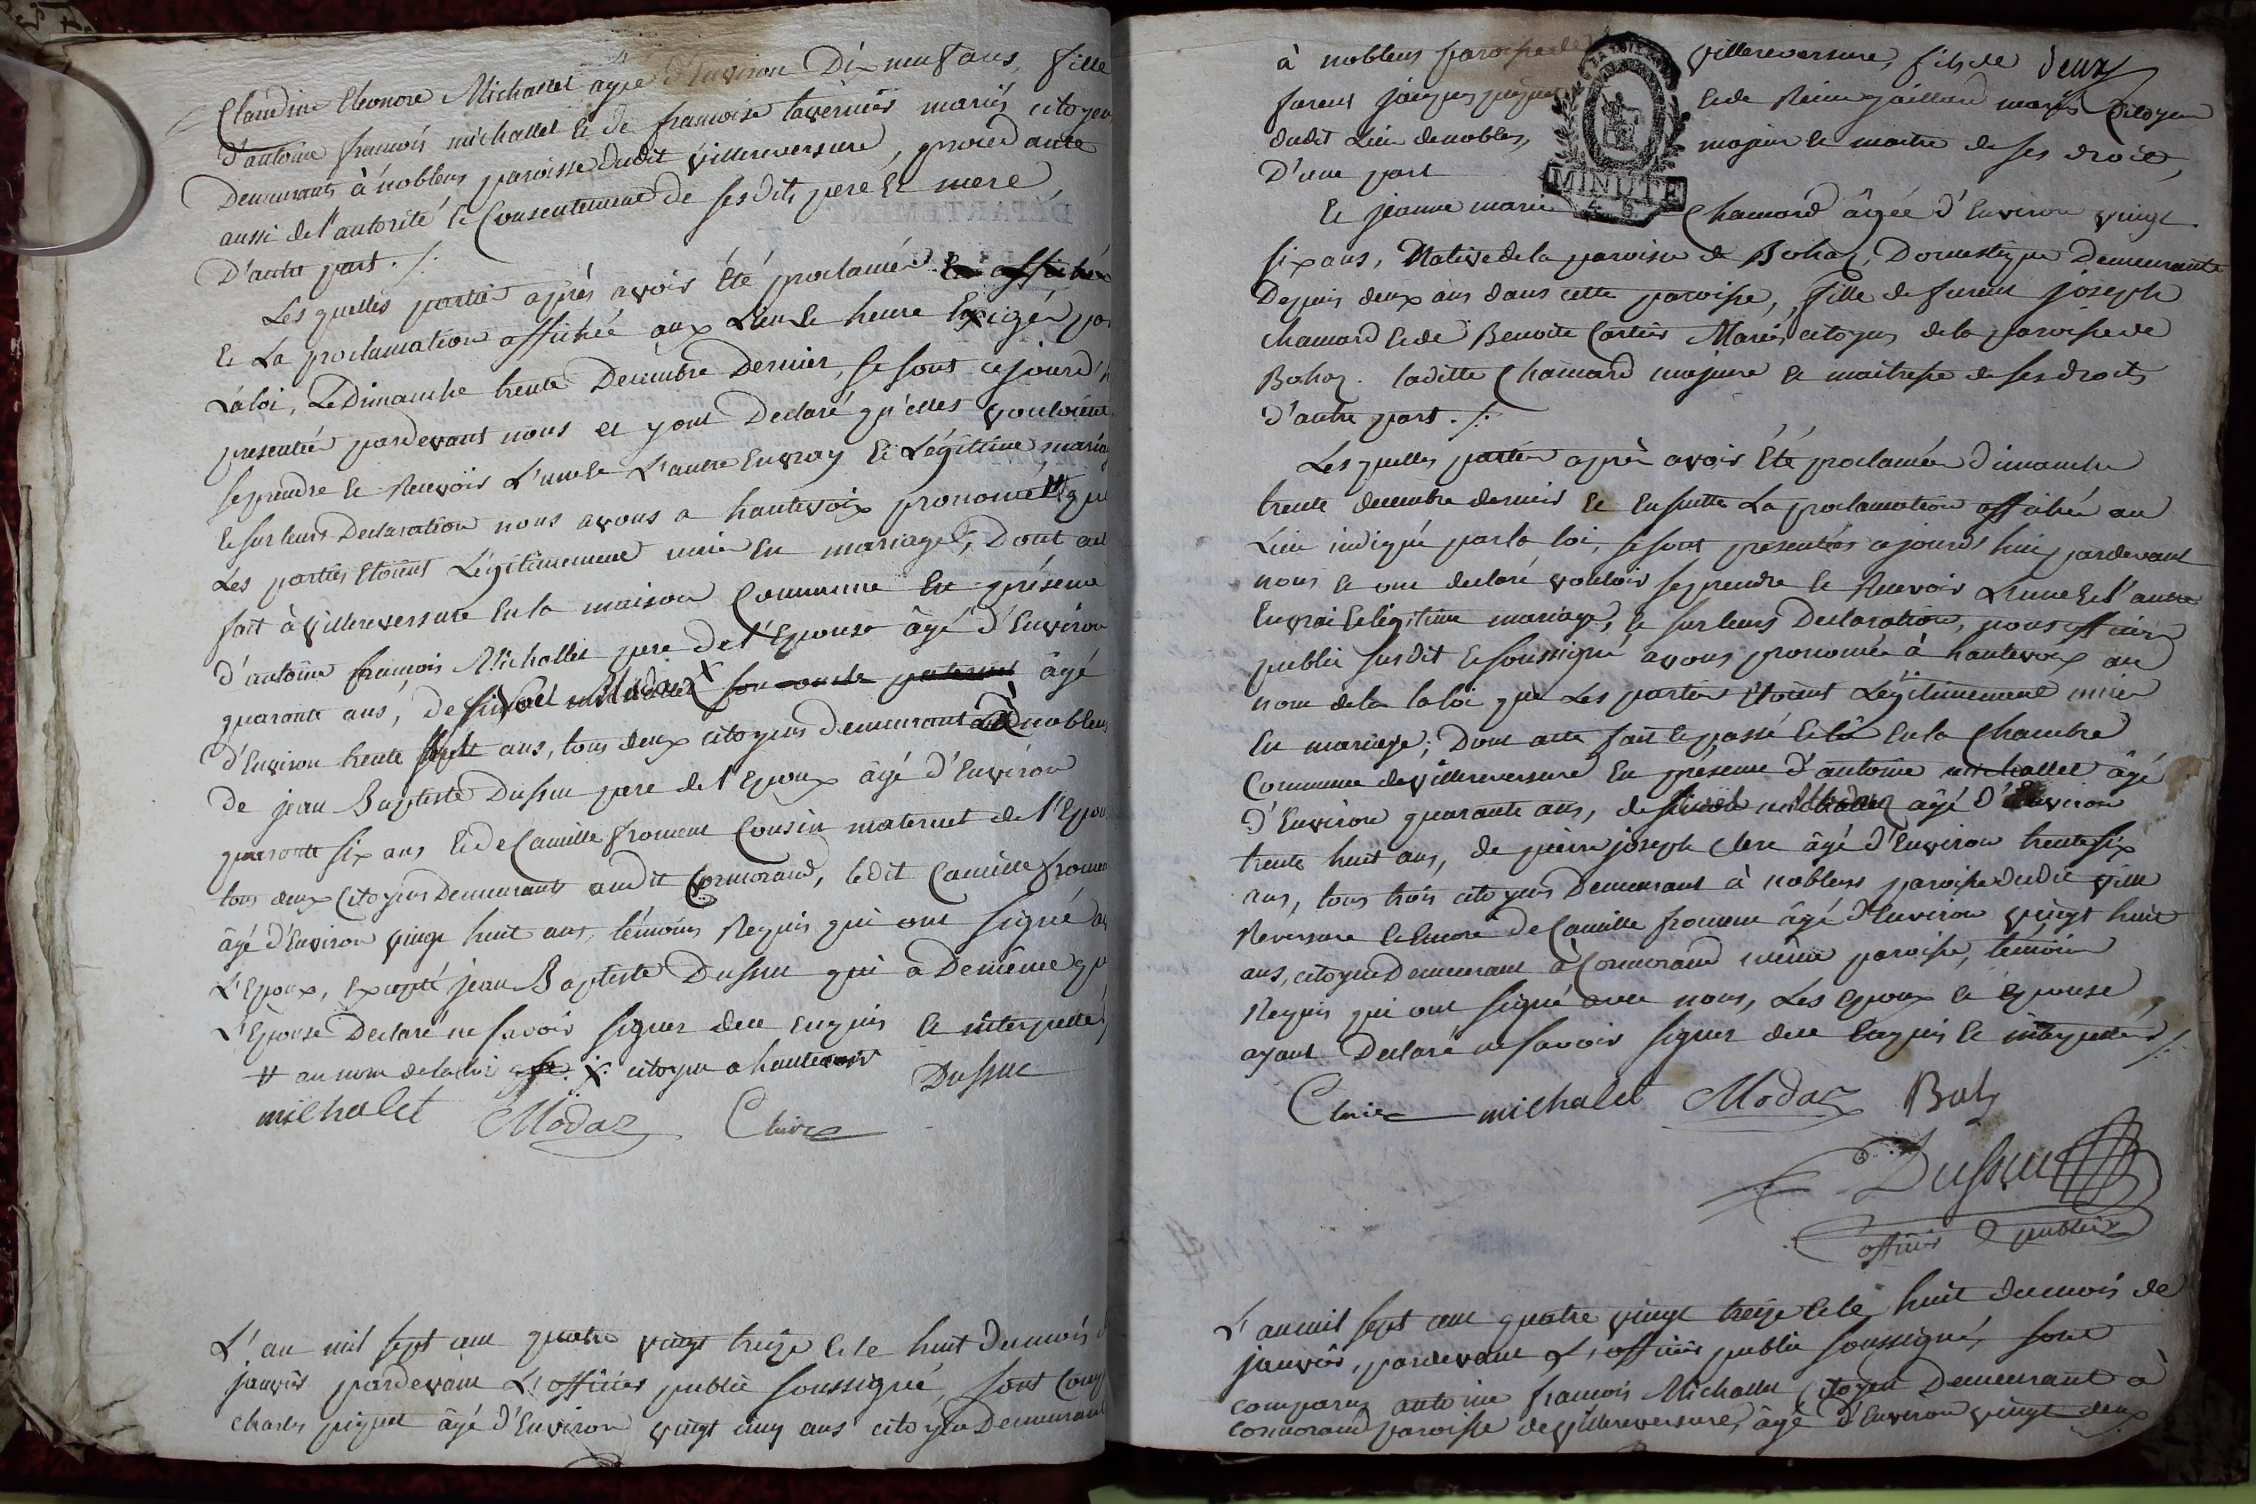 Claudine Eleonore Michallet agée d'Environ Dix neuf ans, fille
d'antoine francois michallet et de francoise tavernier mariés citoyens
Demeurants à noblens paroisse dudit villereversure, procedante
aussi de l'autorité et Consentement de sesdits peré et mere
D'autre part ./.
Les quelles partie après avoir été proclamée
et La proclamation affichée aux Lieu et heure Exigée par
La loi, Le Dimanche trente Décembre Dernier, se sont ce jourd'h
presentée pardevant nous et y ont Declaré qu'elles vouloient
se prendre et Recevoir L'une et L'autre En vray et Légitime mariag
et sur leurs Declaration nous avons a hautevoix prononcé # que
Les parties étoient Légitimement unie En mariage, Dont acte
fait à villereversure En la maison Commune En présence
d'antoine francois Michallet pere de l'Epouse âgé d'Environ
quarante ans, de âgé
d'Environ trente ans, tous deux citoyens demeurant à noblens
de jean Baptiste Dussuc pere de l'Epoux âgé d'Environ
quarante six ans et de Camille froment Cousin maternel de l'Epou
tous deux Citoyens Demeurants audit Cormorand, ledit Camille froment
âgé d'Environ vingt huit ans, témoins Requis qui ont signé av
L'Epoux, Excepté jean Baptiste Dussuc qui a Demême que
L'Epouse Declaré ne savoir signer de ce Enquis et interpellé
# au nom de la loi citoyen a hautevoix
michalet Modaz Claire Dussuc
L'an mil sept cent quatre vingt treize et le huit du mois d
janvier pardevant L'officier public soussigné, sont Comp
Charles piquet âgé d'Environ vingt cinq ans citoyen Demeurant
à noblens paroisse de villereversure, fils de deux
furent jacques piquet et de Reine gaillard mariés Citoyen
dudit Lieu de noblens majeur et maitre de ses droits,
D'une part
MINUTE
Et jeanne marie Chamard âgée d'Environ vingt
six ans, Native de la paroisse de Bohaz, Domestique Demeurante
Depuis deux ans dans cette paroisse, fille de furent joseph
chamard et de Benoite Cartier Mariés, citoyens de la paroisse de
Bohaz. laditte Chamard majeure et maitresse de ses droits
d'autre part ./.
Les quelles parties après avoir été proclamées dimanche
trente decembre dernier et Ensuitte La proclamation affichée au
Lieu indiqué par la loi, se sont presentées ajourd'hui pardevant
nous et ont declaré vouloir se prendre et Recevoir L'une et l'autre
En vrai et légitime mariage, et sur leurs Declaration, nous officier
public susdit et soussigné avons prononcé à hautevoix au
nom de la loi que Les parties étoient Légitimement unie
En mariage; Dont acte fait et passé En la Chambre
Commune de villereversure En présence d'antoine michallet âgé
d'Environ quarante ans, de âgé d'Environ
trente huit ans, de pierre joseph Clere âgé d'Environ trente six
ans, tous trois citoyens Demeurant à noblens paroisse dudit ville
Reversure et Encore de Camille froment âgé d'Environ vingt huit
ans, citoyen Demeurant à Cormorand même paroisse, témoins
Requis qui ont signé avec nous, Les Epoux et Epouse
ayant Declaré ne savoir signer de ce Enquis et interpellés ./.
Claire michalet Modaz
Dussuc
officier public
L'an mil sept cent quatre vingt treize et le huit du mois de
janvier, pardevant L'officier public soussigné, sont
comparus antoine francois Michallet Citoyen Demeurant à
cormorand paroisse de villereversure, âgé d'Environ vingt deux